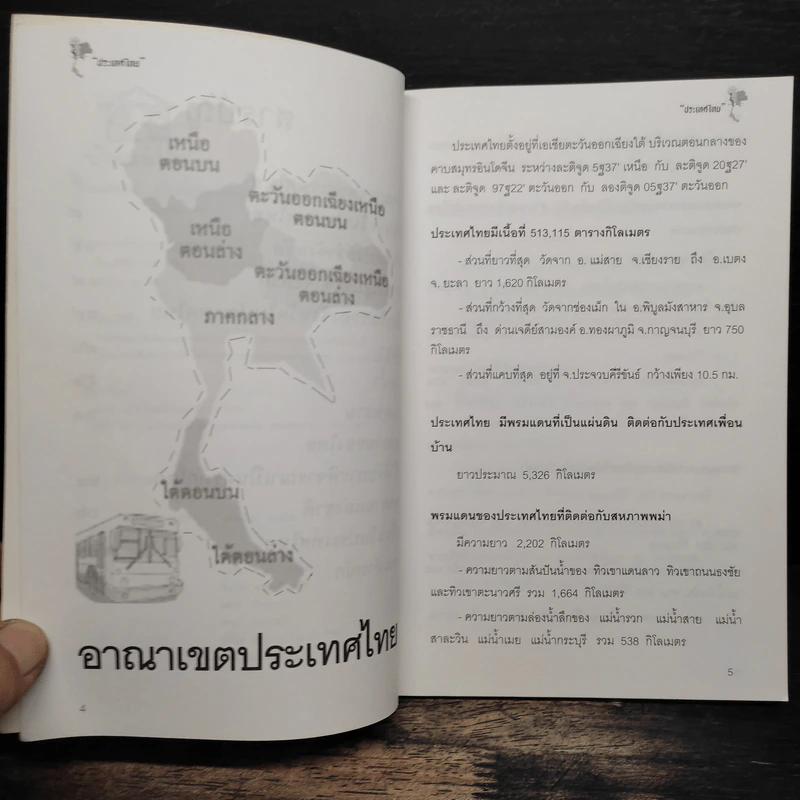 "ประเทศไทย"
เหนือ
ตอนบน
ตะวันออกเฉียงเหนือ
ตอนบน
เหนือ
ตอนล่าง
ตะวันออกเฉียงเหนือ
ตอนล่าง
ภาคกลาง
ใต้ตอนบน
ใต้ตอนล่าง
อาณาเขตประเทศไทย
4
"ประเทศไทย"
ประเทศไทยตั้งอยู่ที่เอเชียตะวันออกเฉียงใต้ บริเวณตอนกลางของ
คาบสมุทรอินโดจีน ระหว่างละติจูด 5ฐ37' เหนือ กับ ละติจูด 20ฐ27'
และ ละติจูด 97ฐ22' ตะวันออก กับ ลองติจูด 05ฐ37' ตะวันออก
ประเทศไทยมีเนื้อที่ 513,115 ตารางกิโลเมตร
- ส่วนที่ยาวที่สุด วัดจาก อ.แม่สาย จ.เชียงราย ถึง อ.เบตง
จ.ยะลา ยาว 1,620 กิโลเมตร
- ส่วนที่กว้างที่สุด วัดจากช่องเม็ก ใน อ.พิบูลมังสาหาร จ.อุบล
ราชธานี ถึง ด่านเจดีย์สามองค์ อ.ทองผาภูมิ จ.กาญจนบุรี ยาว 750
กิโลเมตร
- ส่วนที่แคบที่สุด อยู่ที่ จ.ประจวบคีรีขันธ์ กว้างเพียง 10.5 กม.
ประเทศไทย มีพรมแดนที่เป็นแผ่นดิน ติดต่อกับประเทศเพื่อน
บ้าน
ยาวประมาณ 5,326 กิโลเมตร
พรมแดนของประเทศไทยที่ติดต่อกับสหภาพพม่า
มีความยาว 2,202 กิโลเมตร
- ความยาวตามสันปันน้ำของ ทิวเขาแดนลาว ทิวเขาถนนธงชัย
และทิวเขาตะนาวศรี รวม 1,664 กิโลเมตร
- ความยาวตามล่องน้ำลึกของ แม่น้ำรวก แม่น้ำสาย แม่น้ำ
สาละวิน แม่น้ำเมย แม่น้ำกระบุรี รวม 538 กิโลเมตร
5